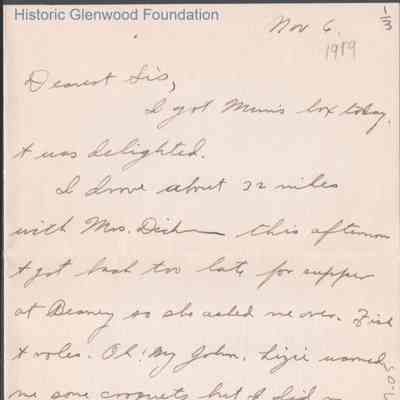 Historic Glenwood Foundation
Nov 6.
1/3
1919
Dearest Sis,
I got Mum's box today.
+ was delighted.
I drove about 32 miles
with Mrs. this afternoon
+ got back too late for supper
at so she asked me over. Fish
+ rolls. Oh! My John. Lizie warmed
me some but I did